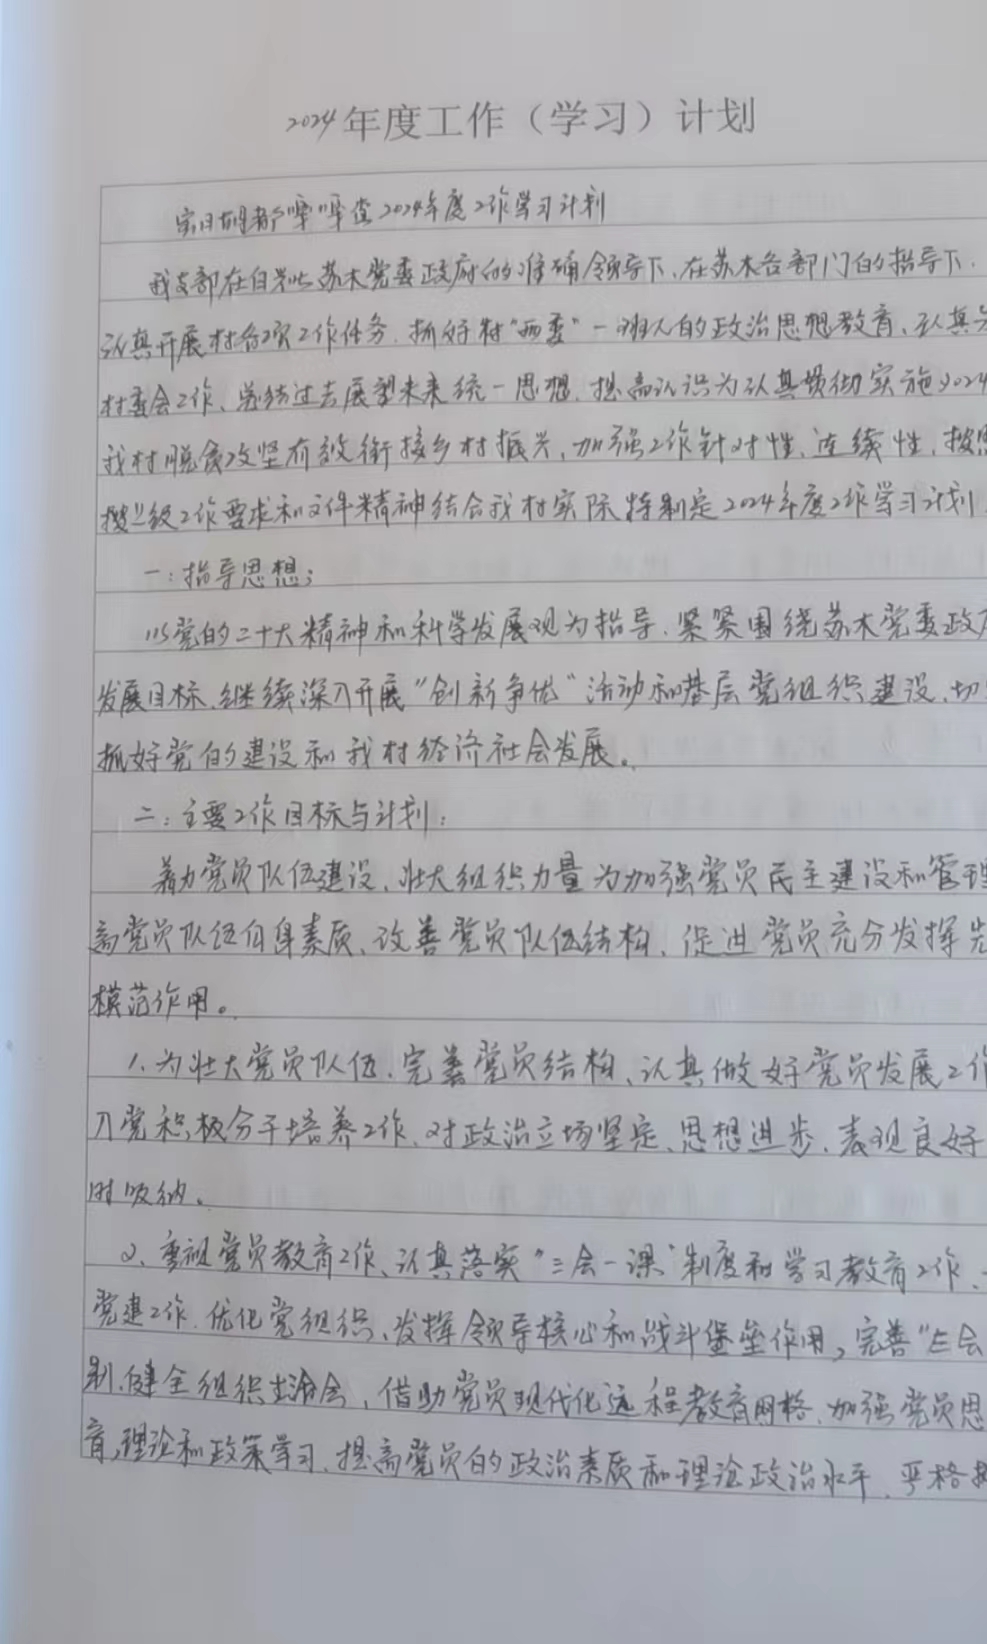 2024年度工作（学习）计划
都嘎查2024年度工作学习计划
我支部在白兴吐苏木党委政府的准确领导下、在苏木各部门的指导下.
认真开展村各项工作任务.抓好村"两委"一班人的政治思想教育、认真
村委会工作、总结过去展望未来统一思想.提高认识为认真贯彻实施2024
我村脱贫攻坚有效衔接乡村振兴,加强工作针对性、连续性,按
按上级工作要求和文件精神结合我村实际特制定2024年度工作学习计划
一:指导思想;
以党的二十大精神和科学发展观为指导.紧紧围绕苏木党委政
发展目标.继续深入开展"创新争优"活动和基层党组织建设、切
抓好党的建设和我村经济社会发展。
二:主要工作目标与计划:
着力党员队伍建设、壮大组织力量为加强党员民主建设和管理
高党员队伍自身素质、改善党员队伍结构,促进党员充分发挥先
模范作用。
1.为壮大党员队伍.完善党员结构、认真做好党员发展工作
入党积极分子培养工作.对政治立场坚定、思想进步、表现良好
时吸纳、
2、重视党员教育工作、认真落实"三会一课"制度和学习教育工作、
党建工作.优化党组织、发挥领导核心和战斗堡垒作用,完善"三会
制.健全组织生活会,借助党员现代化远程教育网格.加强党员思
育,理论和政策学习.提高党员的政治素质和理论政治水平.严格